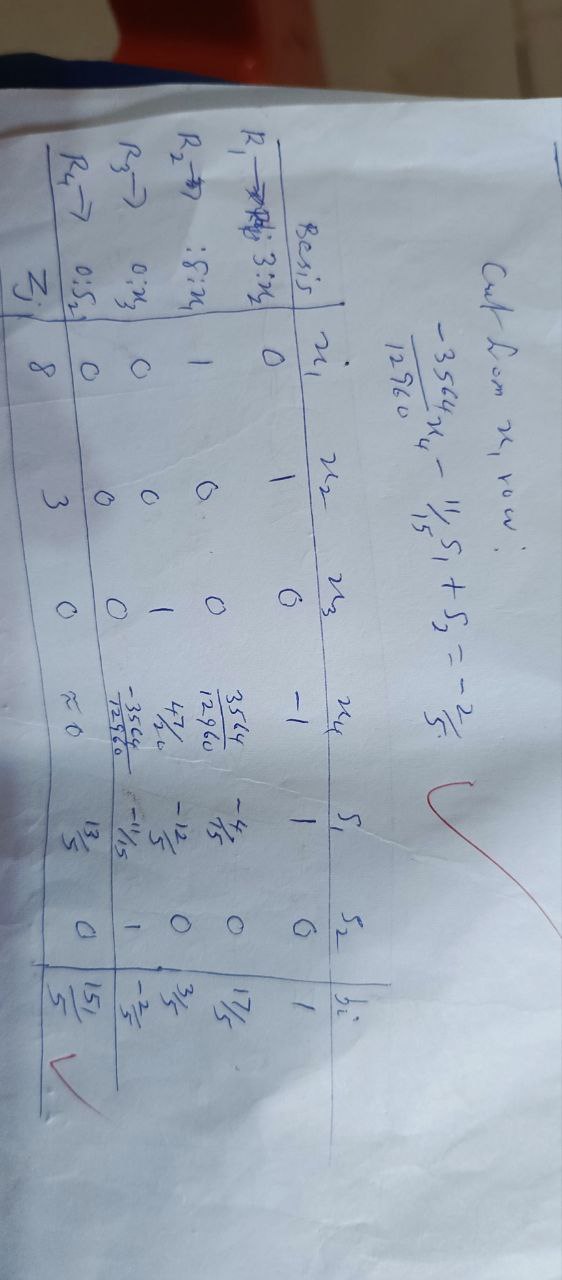 Cut from x₁ row:
-3564/12960 x₄ - 11/15 S₁ + S₂ = -2/5
Basis x₁ x₂ x₃ x₄ S₁ S₂ bi
R₁ → 3:x₂ 0 1 0 -1 1 0 1
R₂ → :8:x₁ 1 0 0 3564/12960 -4/15 0 17/5
R₃ → 0:x₃ 0 0 1 47/20 -12/5 0 3/5
R₄ → 0:S₂ 0 0 0 -3564/12960 -11/15 1 -2/5
Zj 8 3 0 ≈0 13/5 0 151/5